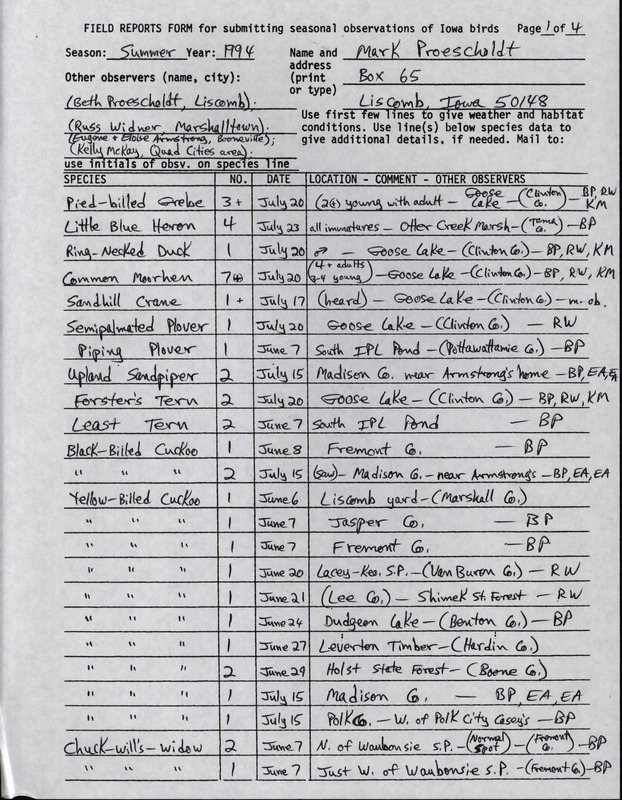 FIELD REPORTS FORM for submitting seasonal observations of Iowa birds Page 1 of 4
Season: Summer Year: 1994 Name and address (print or type) Mark Proescholdt
Box 65
Liscomb, Iowa 50148
Other observers (name, city):
(Beth Proescholdt, Liscomb).
(Russ Widner Marshalltown).
(Eugene + Eloise Armstrong, Booneville);
(Kelly McKay, Quad Cities area).
use initials of obsv. on species line
Use first few lines to give weather and habitat
conditions. Use line(s) below species data to
give additional details, if needed. Mail to:
SPECIES NO. DATE LOCATION - COMMENT - OTHER OBSERVERS
Pied-billed Grebe 3+ July 20 (2@) young with adult - Goose Lake - (Clinton Co.) - BP, RW KM
Little Blue Heron 4 July 23 all immatures - Otter Creek Marsh - (Tama Co.) - BP
Ring-Necked Duck 1 July 20 ♂ - Goose Lake - (Clinton Co.) - BP, RW, KM
Common Moorhen 7+ July 20 (4+ adults 3-4 young) - Goose Lake - (Clinton Co.) - BP, RW, KM
Sandhill Crane 1+ July 17 (heard) - Goose Lake - (Clinton Co.) - m. ob.
Semipalmated Plover 1 July 20 Goose Lake - (Clinton Co.) - RW
Piping Plover 1 June 7 South IPL Pond - (Pottawattamie Co.) - BP
Upland Sandpiper 2 July 15 Madison Co. near Armstrong's home - BP, EA, EA
Forster's Tern 2 July 20 Goose Lake - (Clinton Co.) - BP, RW, KM
Least Tern 2 June 7 South IPL Pond - BP
Black-Billed Cuckoo 1 June 8 Fremont Co. - BP
" " " 2 July 15 (saw) - Madison Co. - near Armstrong's - BP, EA, EA
Yellow-Billed Cuckoo 1 June 6 Liscomb yard - (Marshall Co.)
" " " 1 June 7 Jasper Co. - BP
" " " 1 June 7 Fremont Co. - BP
" " " 1 June 20 Lacey-Keo. S.P. - (Van Buren Co.) - RW
" " " 1 June 21 (Lee Co.) - Shimek St. Forest - RW
" " " 1 June 24 Dudgeon Lake - (Benton Co.) - BP
" " " 1 June 27 Leverton Timber - (Hardin Co.)
" " " 2 June 29 Holst State Forest - (Boone Co.)
" " " 1 July 15 Madison Co. - BP, EA, EA
" " " 1 July 15 Polk Co. - W. of Polk City Casey's - BP
Chuck-will's-widow 2 June 7 N. of Waubonsie S.P. - (Normal Spot) - (Fremont Co.) - BP
" " " 1 June 7 Just W. of Waubonsie S.P. - (Fremont Co.) - BP